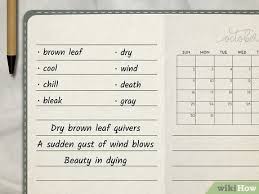 October
• brown leaf • dry
• cool • wind
• chill • death
• bleak • gray
SUN MON TUE
Dry brown leaf quivers
A sudden gust of wind blows
Beauty in dying
wikiHow